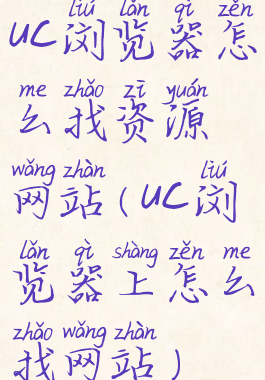 liú lǎn qì zěn
UC浏览器怎
me zhǎo zī yuán
么找资源
wǎng zhàn liú
网站(UC浏
lǎn qì shàng zěn me
览器上怎么
zhǎo wǎng zhàn
找网站)